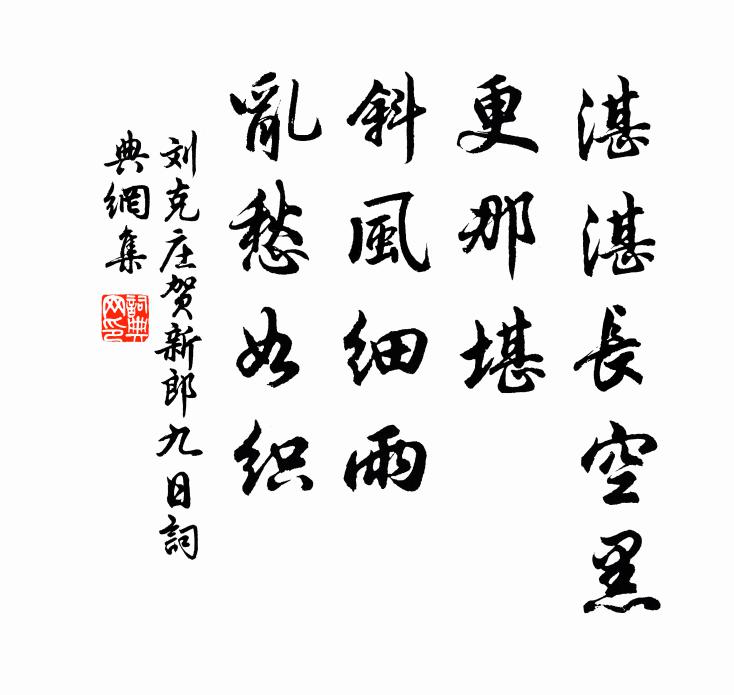 湛湛長空黑
更那堪
斜風細雨
亂愁如織
刘克庄贺新郎九日詞
典網集
詞典网印